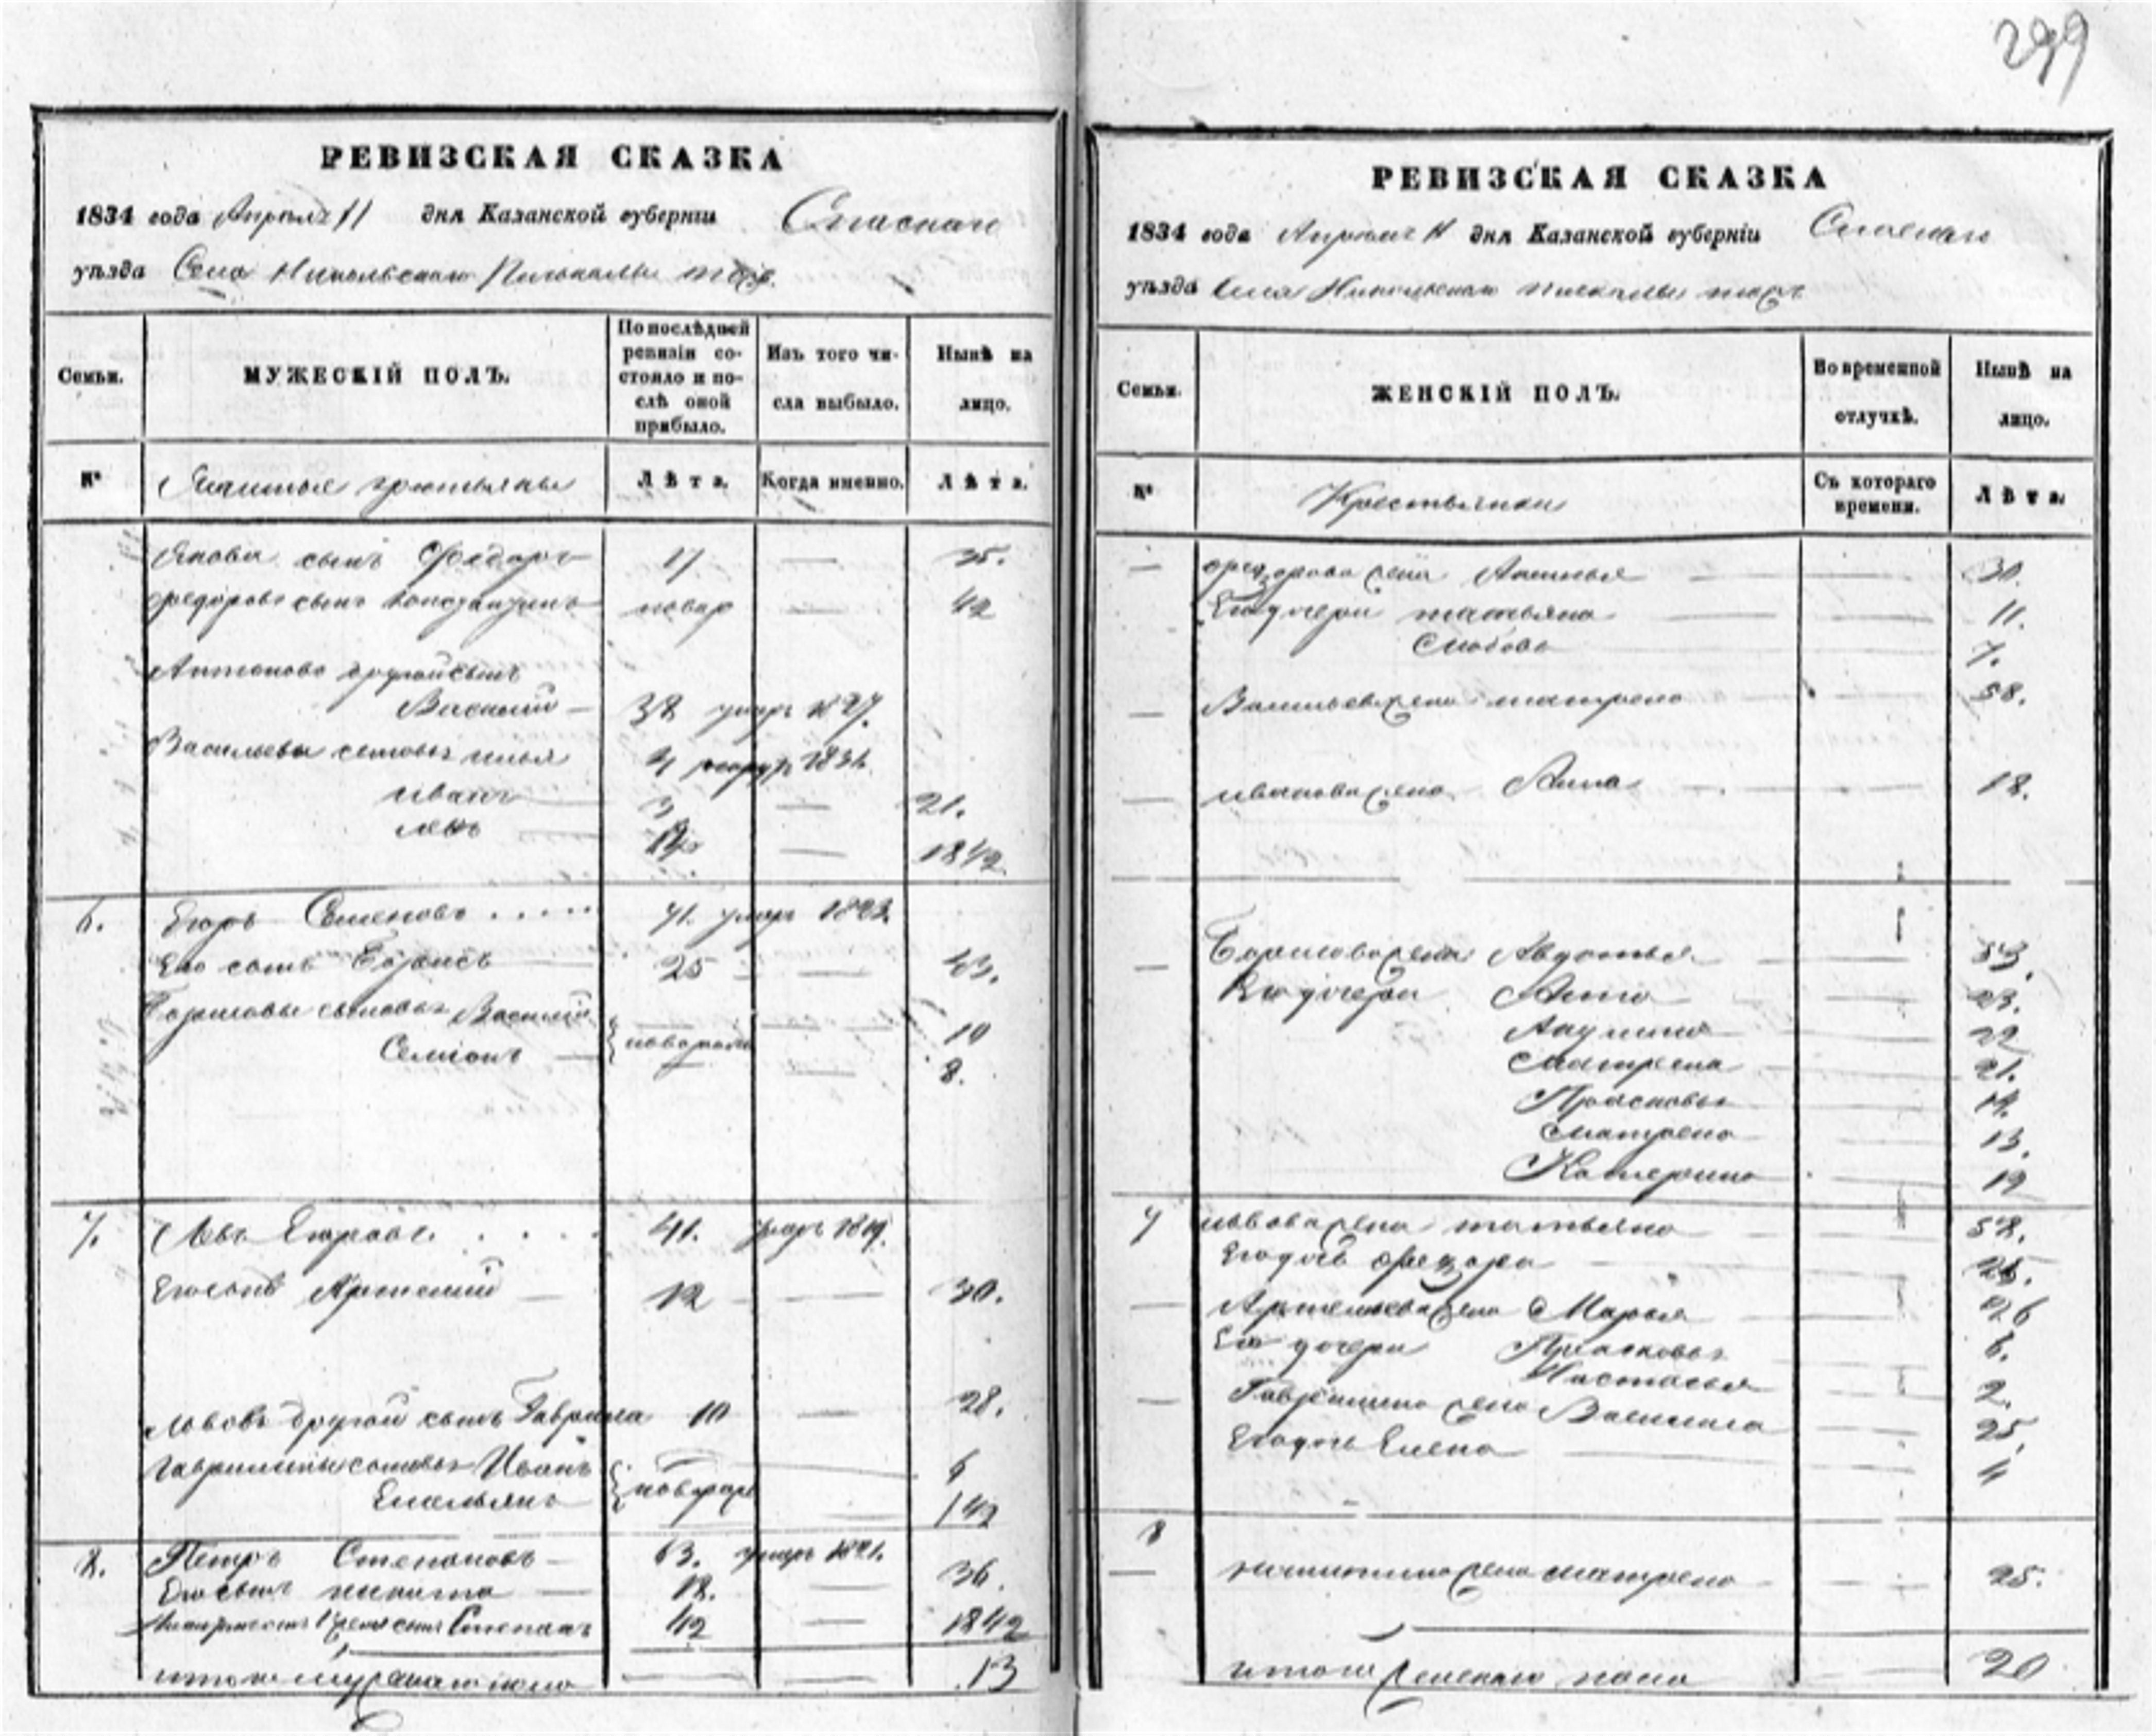 299
РЕВИЗСКАЯ СКАЗКА
1834 года Апреля 11 дня Казанской губерніи Спаскаго
уѣзда Села Никольскаго
Семьи.
МУЖЕСКІЙ ПОЛЪ.
По послѣдней ревизіи состояло и послѣ оной прибыло.
Изъ того числа выбыло.
Нынѣ на лицо.
№
крестьяне
Лѣта.
Когда именно.
Лѣта.
сынъ Федоръ 17 — 35.
Федоровъ сынъ Константинъ — 1/2
Антоновъ другой сынъ
Василий — 38 умеръ 1827.
Васильевы сыновья Илья 4 рекрут 1831.
Иванъ 3 — 21.
Левъ 1/2 — 18 1/2
6. Егоръ Семеновъ ..... 41. умеръ 1823.
Его сынъ Борисъ 25 — 43.
Борисовы сыновья Василій — 10
Семіонъ — 8.
7. Левъ Егоровъ. 41. умеръ 1819.
Его сынъ Артемий 12 — 30.
Львовъ другой сынъ Гаврила 10 — 28.
Гавриловы сыновья Иванъ 6
Емельянъ 1 1/2
8. Петръ Степановъ — 63. умеръ 1821.
Его сынъ Никита — 18. — 36.
сынъ Степанъ 1/2 — 18 1/2
итого мужескаго пола — — 13
РЕВИЗСКАЯ СКАЗКА
1834 года Апреля 11 дня Казанской губерніи Спаскаго
уѣзда Села Никольскаго
Семьи.
ЖЕНСКІЙ ПОЛЪ.
Во временной отлучкѣ.
Нынѣ на лицо.
№
Крестьянки
Съ котораго времени.
Лѣта.
— Федорова жена Аксинья — 30.
Его дочери Татьяна — 11.
Любовь — 7.
— Васильева жена Матрена 58.
— Иванова жена Анна — 18.
— Борисова жена Авдотья — 53.
Его дочери Анна — 23.
Акулина — 22
Матрена — 21.
Прасковья — 14.
Матрена — 13.
Катерина 12
7 Львова жена Татьяна — 58.
Его дочь Федора — 25.
— Артемьева жена Марья — 26
Его дочери Прасковья — 6.
Настасья — 2.
— Гаврилина жена Василиса — 25.
Его дочь Елена — 4
8
— Никитина жена Матрена — 25.
итого женскаго пола 20